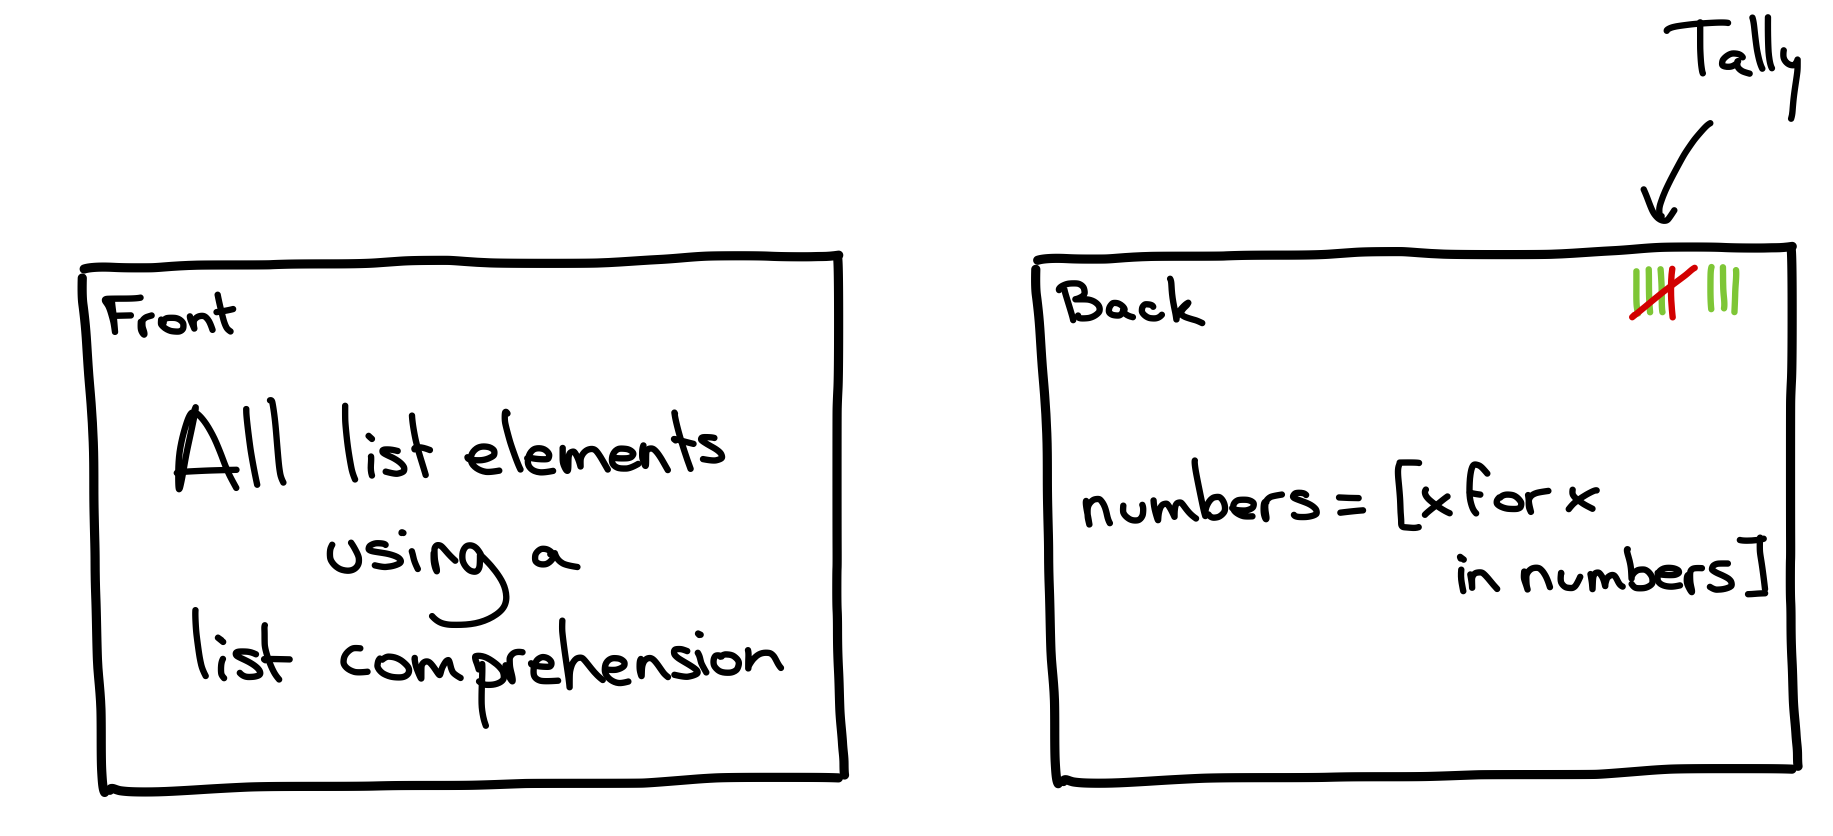 Tally
Front
All list elements
using a
list comprehension
Back
numbers = [x for x
in numbers]